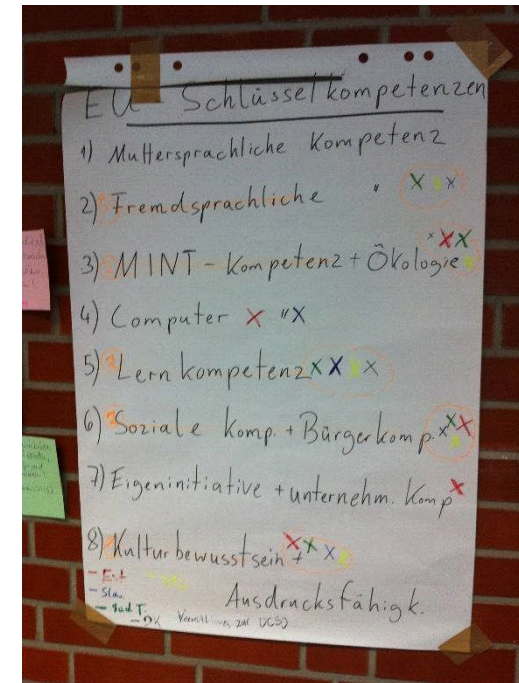 EU Schlüsselkompetenzen
1) Muttersprachliche Kompetenz
2) Fremdsprachliche " X X X
3) MINT - Kompetenz + Ökologie x X X
4) Computer X " X
5) Lernkompetenz X X X X
6) Soziale Komp. + Bürgerkomp. x X X
7) Eigeninitiative + unternehm. Komp X
8) Kulturbewusstsein + X X X X
Ausdrucksfähigk.
- Est
- Sla.
- Bad T.
- DK
zur UCSJ